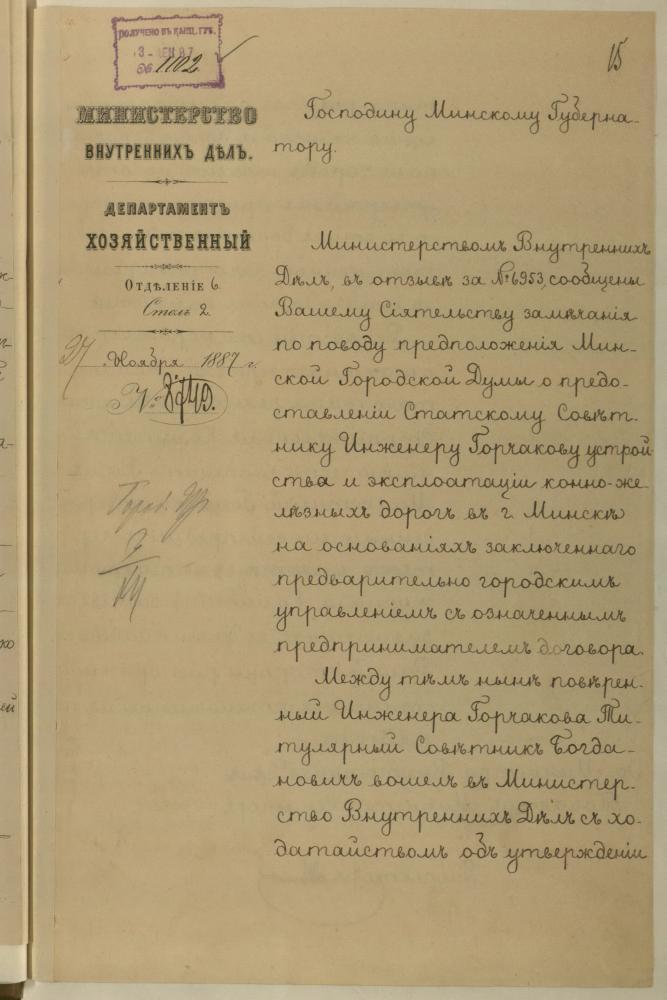 ПОЛУЧЕНО ВЪ КАНЦ. ГУБ.
1102
15
МИНИСТЕРСТВО
ВНУТРЕННИХЪ ДѢЛЪ.
ДЕПАРТАМЕНТЪ
ХОЗЯЙСТВЕННЫЙ
ОТДѢЛЕНІЕ 6
Столъ 2.
27 Ноября 1887 г.
№ 8749.
Город.
Господину Минскому Губерна-
тору.
Министерствомъ Внутреннихъ
Дѣлъ, въ отзывѣ за № 6953, сообщены
Вашему Сіятельству замѣчанія
по поводу предположенія Мин-
ской Городской Думы о предо-
ставленіи Статскому Совѣт-
нику Инженеру Горчакову устрой-
ства и эксплоатаціи конно-же-
лѣзныхъ дорогъ въ г. Минскѣ
на основаніяхъ заключеннаго
предварительно городскимъ
управленіемъ съ означеннымъ
предпринимателемъ договора.
Между тѣмъ нынѣ повѣрен-
ный Инженера Горчакова Ти-
тулярный Совѣтникъ Богда-
новичъ вошелъ въ Министер-
ство Внутреннихъ Дѣлъ съ хо-
датайствомъ объ утвержденіи